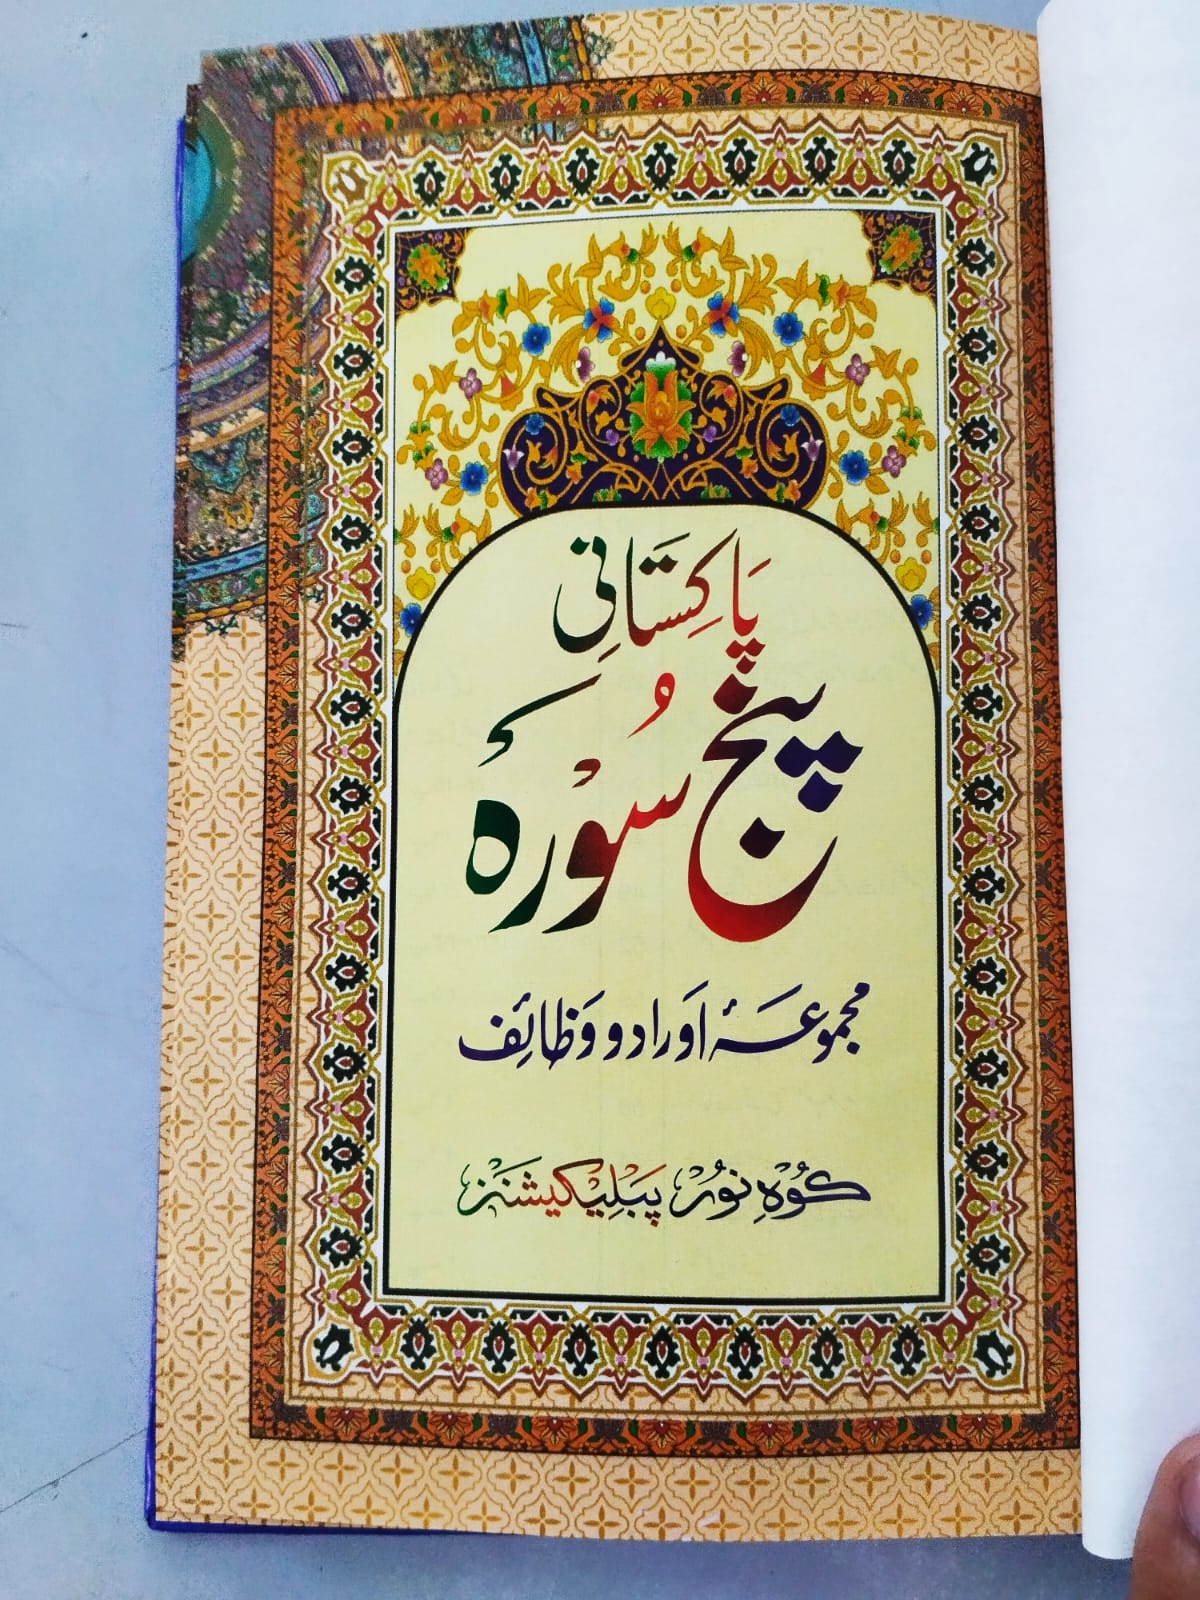 پاکستانی
پنج سورہ
مجموعۂ اوراد و وظائف
کوہِ نور پبلیکیشنز